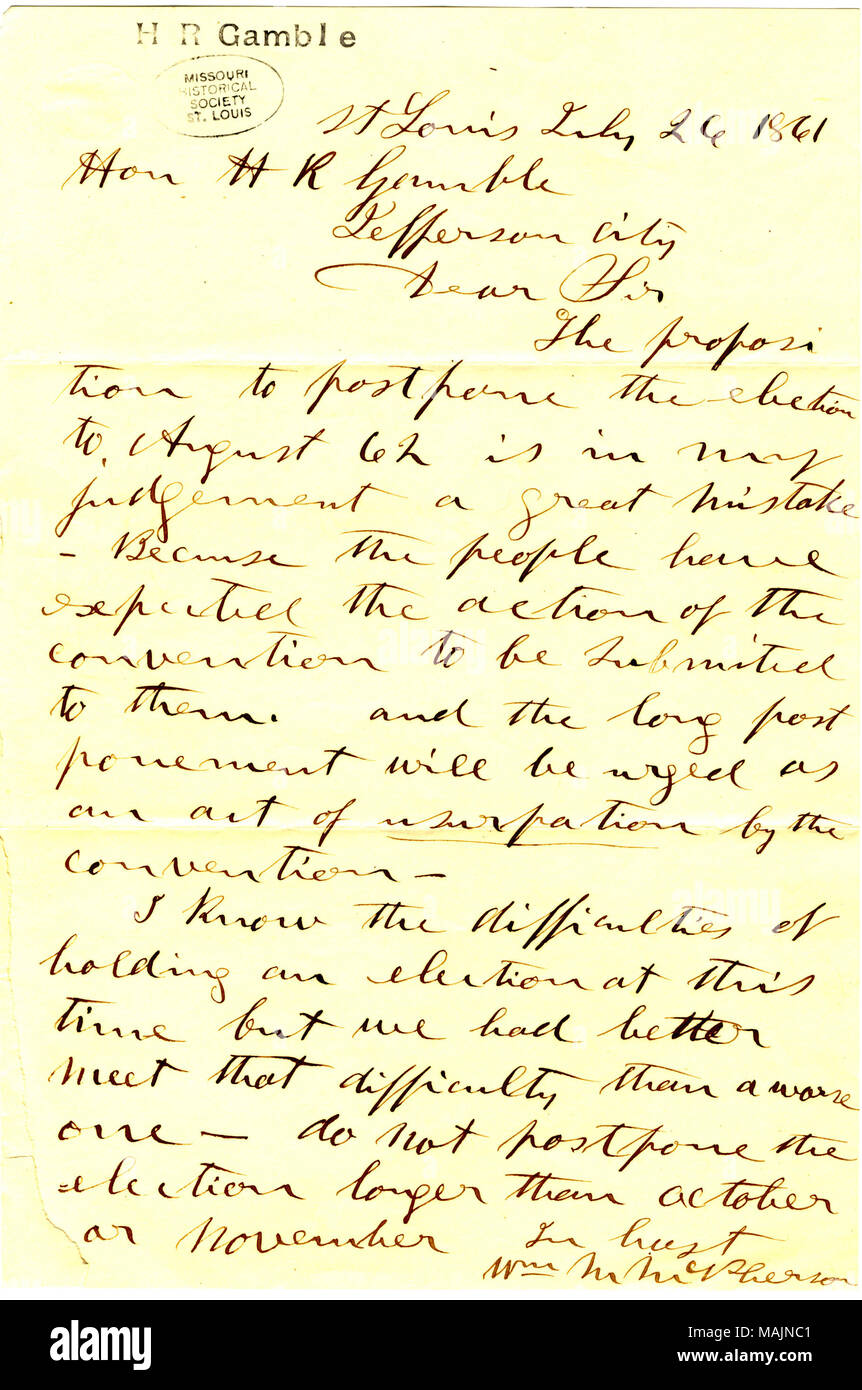 H R Gamble
MISSOURI
HISTORICAL
SOCIETY
ST. LOUIS
St Louis July 26 1861
Hon H R Gamble
Jefferson City
Dear Sir
The proposi
tion to postpone the election
to August 62 is in my
judgement a great mistake
- Because the people have
expected the action of the
convention to be submited
to them. and the long post
ponement will be urged as
an act of usurpation by the
convention -
I know the difficulties of
holding an election at this
time but we had better
meet that difficulty than a worse
one - do not postpone the
election longer than october
or November In hast
Wm M McPherson
alamy
Image ID: MAJNC1
www.alamy.com